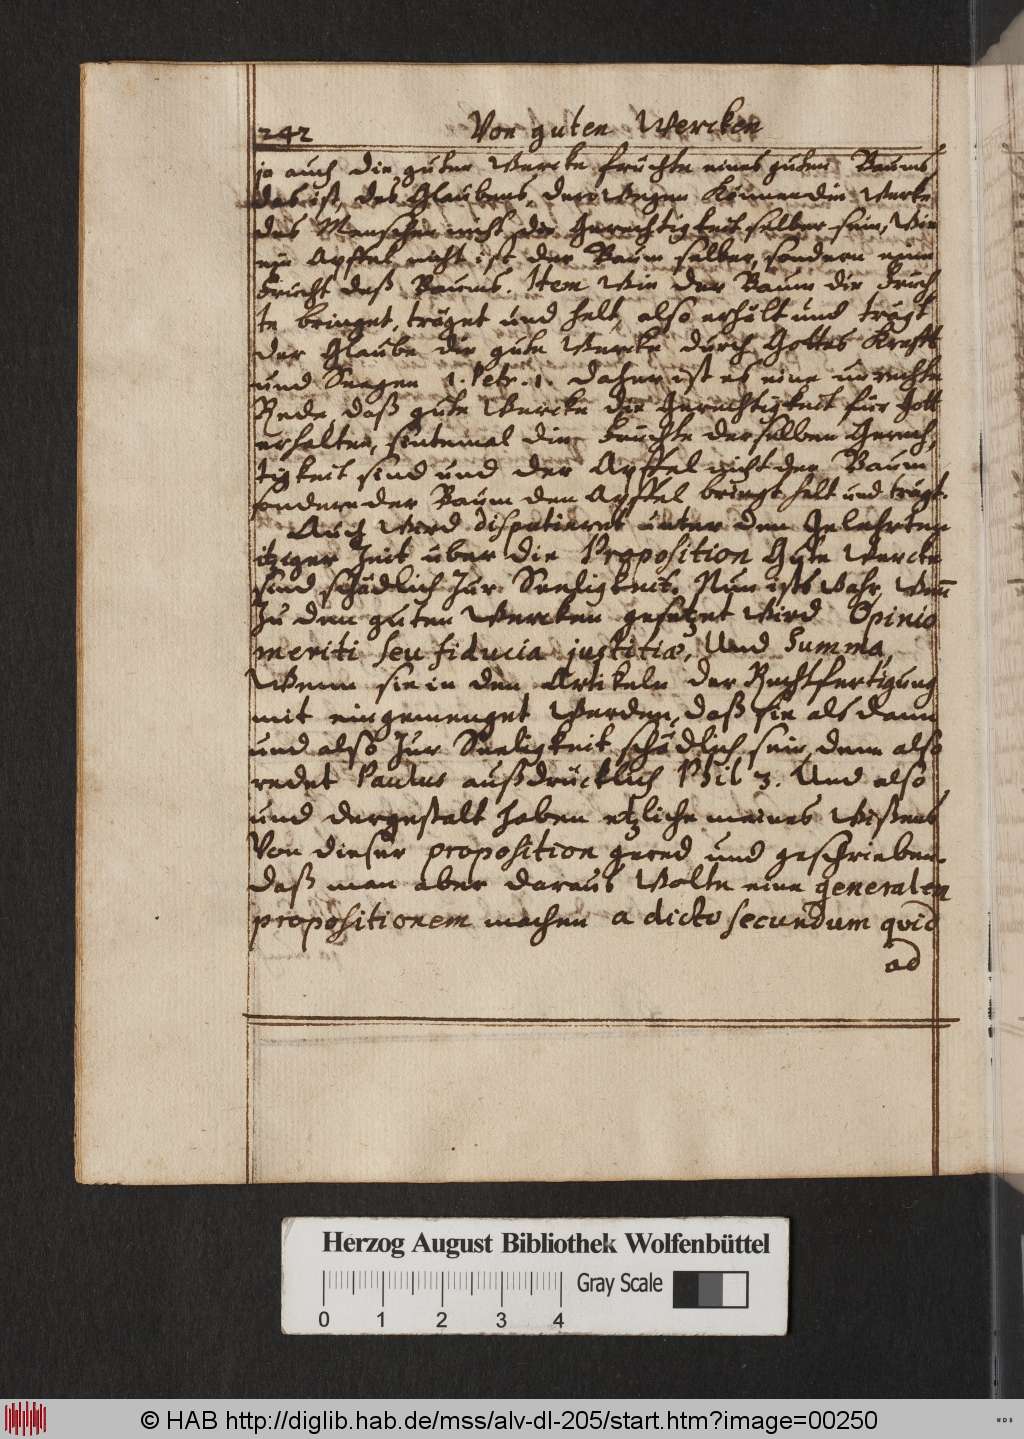 242 Von guten Wercken
ja auch die guten Wercke früchte eines guten Baums
das ist, des Glaubens, derwegen können die Werke
des Menschen nicht die Gerechtigkeit selber sein, Wie
ein Apffel nicht ist der Baum selber, sondern eine
Frucht deß Baums. Item Wie der Baum die Früch
te bringet, träget und helt, also erhält und trägt
der Glaube die gute Wercke durch Gottes Krafft
und Seegen 1. Petr. 1. Daher ist es eine unrechte
Rede, daß gute Wercke die Gerechtigkeit für Gott
erhalten, sintemal die Früchte derselben Gerech,
tigkeit sind und der Apffel nicht den Baum
sondern der Baum den Apffel bringt helt und trägt.
Auch Wird disputieret unter den Gelehrten
itziger Zeit über die Proposition Gute Wercke
sind schädlich Zur Seeligkeit. Nun ists Wahr, Weñ
Zu den guten Wercken gesetzet Wird Opinio
meriti seu fiducia justitiæ, Und Summa,
Wenn sie in den Artikeln der Rechtfertigung
mit eingemenget Werden, daß sie als dann
und also Zur Seeligkeit schädlich sein, denn also
redet Paulus außdrücklich Phil 3. Und also
und dergestalt haben etzliche meines Wißens
Von dieser proposition gered und geschrieben.
Daß man aber daraus Wolte eine generalen
propositionem machen a dicto secundum qvid
ad
Herzog August Bibliothek Wolfenbüttel
Gray Scale
0 1 2 3 4
© HAB http://diglib.hab.de/mss/alv-dl-205/start.htm?image=00250